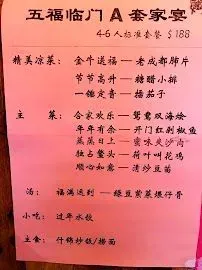 五福临门 A 套家宴
4-6人标准套餐 $188
精美凉菜: 金牛送福 — 老成都肺片
节节高升 — 糖醋小排
一锤定音 — 擂茄子
主 菜: 合家欢乐 — 鸳鸯双海烩
年年有余 — 开门红剁椒鱼
蒸蒸日上 — 蜜味夹沙肉
独占鳌头 — 荷叶叫花鸡
顺心如意 — 清炒豆苗
汤: 福满运到 — 绿豆黄菜煨仔骨
小吃: 过年水饺
主食: 什锦炒饭/捞面